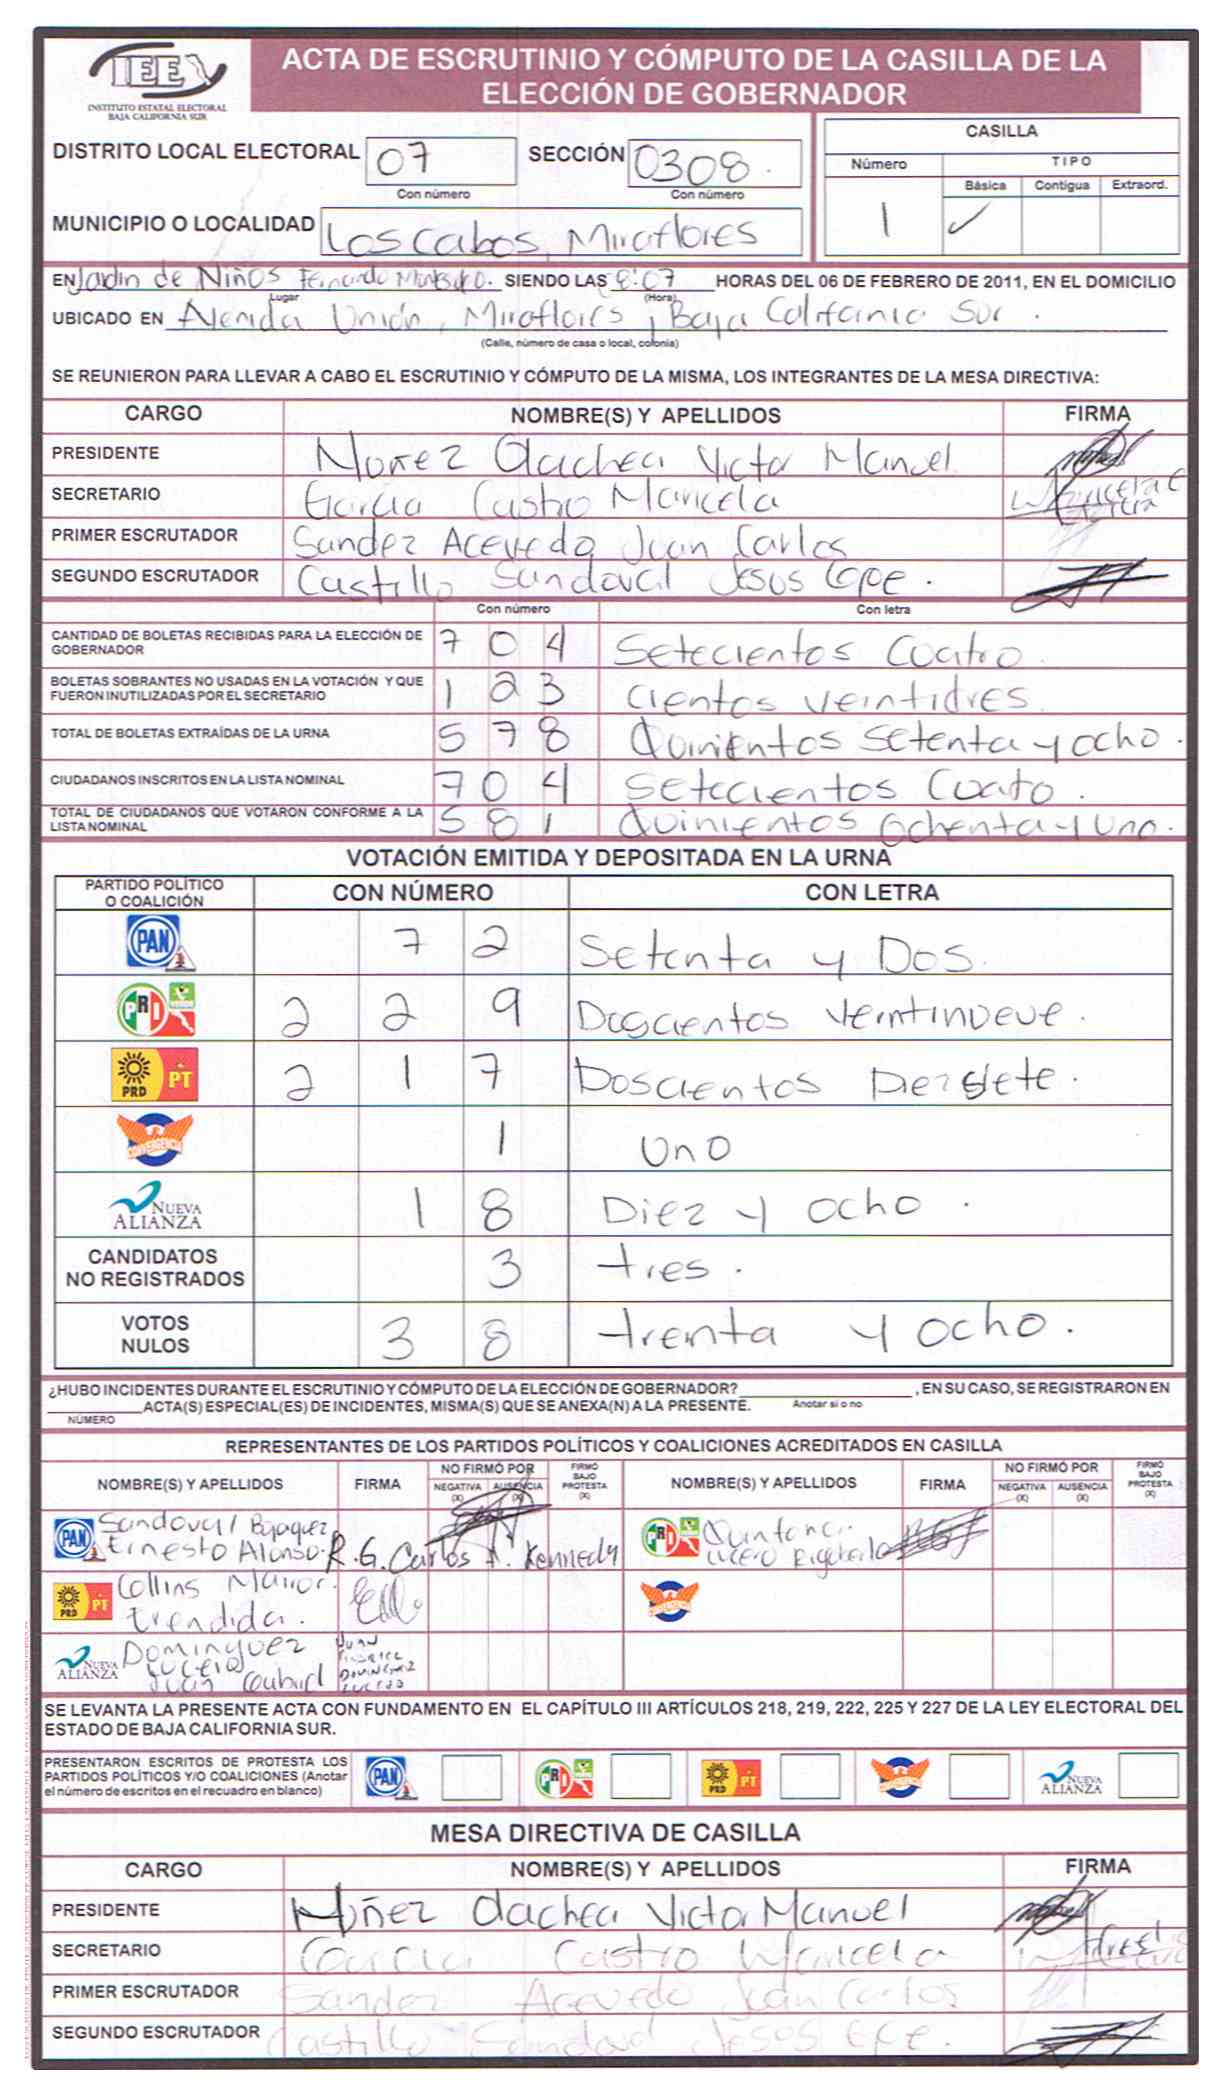 IEE
INSTITUTO ESTATAL ELECTORAL
BAJA CALIFORNIA SUR
ACTA DE ESCRUTINIO Y CÓMPUTO DE LA CASILLA DE LA
ELECCIÓN DE GOBERNADOR
DISTRITO LOCAL ELECTORAL 07 SECCIÓN 0308.
Con número Con número
MUNICIPIO O LOCALIDAD Los Cabos, Miraflores
CASILLA
Número TIPO
Básica Contigua Extraord.
1 ✓
EN Jardin de Niños Fernando SIENDO LAS 8:07 HORAS DEL 06 DE FEBRERO DE 2011, EN EL DOMICILIO
Lugar (Hora)
UBICADO EN Avenida Unión, Miraflores, Baja California Sur.
(Calle, número de casa o local, colonia)
SE REUNIERON PARA LLEVAR A CABO EL ESCRUTINIO Y CÓMPUTO DE LA MISMA, LOS INTEGRANTES DE LA MESA DIRECTIVA:
CARGO NOMBRE(S) Y APELLIDOS FIRMA
PRESIDENTE Núñez Olachea Victor Manuel
SECRETARIO García Castro Maricela
PRIMER ESCRUTADOR Sandez Acevedo Juan Carlos
SEGUNDO ESCRUTADOR Castillo Sandoval Jesus
Con número Con letra
CANTIDAD DE BOLETAS RECIBIDAS PARA LA ELECCIÓN DE
GOBERNADOR 7 0 4 Setecientos Cuatro.
BOLETAS SOBRANTES NO USADAS EN LA VOTACIÓN Y QUE
FUERON INUTILIZADAS POR EL SECRETARIO 1 2 3 cientos veintidres.
TOTAL DE BOLETAS EXTRAÍDAS DE LA URNA 5 7 8 Quinientos Setenta y ocho.
CIUDADANOS INSCRITOS EN LA LISTA NOMINAL 7 0 4 Setecientos Cuato.
TOTAL DE CIUDADANOS QUE VOTARON CONFORME A LA
LISTA NOMINAL 5 8 1 Quinientos Ochenta y Uno.
VOTACIÓN EMITIDA Y DEPOSITADA EN LA URNA
PARTIDO POLÍTICO
O COALICIÓN CON NÚMERO CON LETRA
PAN 7 2 Setenta y Dos.
PRI 2 2 9 Doscientos Veintinueve.
PRD PT 2 1 7 Doscientos Diezsiete.
CONVERGENCIA 1 Uno
NUEVA ALIANZA 1 8 Diez y ocho.
CANDIDATOS
NO REGISTRADOS 3 tres.
VOTOS
NULOS 3 8 trenta y ocho.
¿HUBO INCIDENTES DURANTE EL ESCRUTINIO Y CÓMPUTO DE LA ELECCIÓN DE GOBERNADOR? , EN SU CASO, SE REGISTRARON EN
ACTA(S) ESPECIAL(ES) DE INCIDENTES, MISMA(S) QUE SE ANEXA(N) A LA PRESENTE. Anotar si o no
NÚMERO
REPRESENTANTES DE LOS PARTIDOS POLÍTICOS Y COALICIONES ACREDITADOS EN CASILLA
NOMBRE(S) Y APELLIDOS FIRMA NO FIRMÓ POR NEGATIVA (X) AUSENCIA (X) FIRMÓ BAJO PROTESTA (X) NOMBRE(S) Y APELLIDOS FIRMA NO FIRMÓ POR NEGATIVA (X) AUSENCIA (X) FIRMÓ BAJO PROTESTA (X)
PAN Sandoval PRI Quintana
Ernesto Alonso. R. G. Carlos A. Kennedy Lucero
PRD PT Collins CONVERGENCIA
NUEVA ALIANZA Dominguez Juan
Lucero Gabriel
Juan Gabriel Dominguez
Lucero
SE LEVANTA LA PRESENTE ACTA CON FUNDAMENTO EN EL CAPÍTULO III ARTÍCULOS 218, 219, 222, 225 Y 227 DE LA LEY ELECTORAL DEL
ESTADO DE BAJA CALIFORNIA SUR.
PRESENTARON ESCRITOS DE PROTESTA LOS
PARTIDOS POLÍTICOS Y/O COALICIONES (Anotar
el número de escritos en el recuadro en blanco) PAN PRI PRD PT CONVERGENCIA NUEVA ALIANZA
MESA DIRECTIVA DE CASILLA
CARGO NOMBRE(S) Y APELLIDOS FIRMA
PRESIDENTE Núñez Olachea Victor Manuel
SECRETARIO Garcia Castro Maricela
PRIMER ESCRUTADOR Sandez Acevedo Juan Carlos
SEGUNDO ESCRUTADOR Castillo Sandoval Jesus